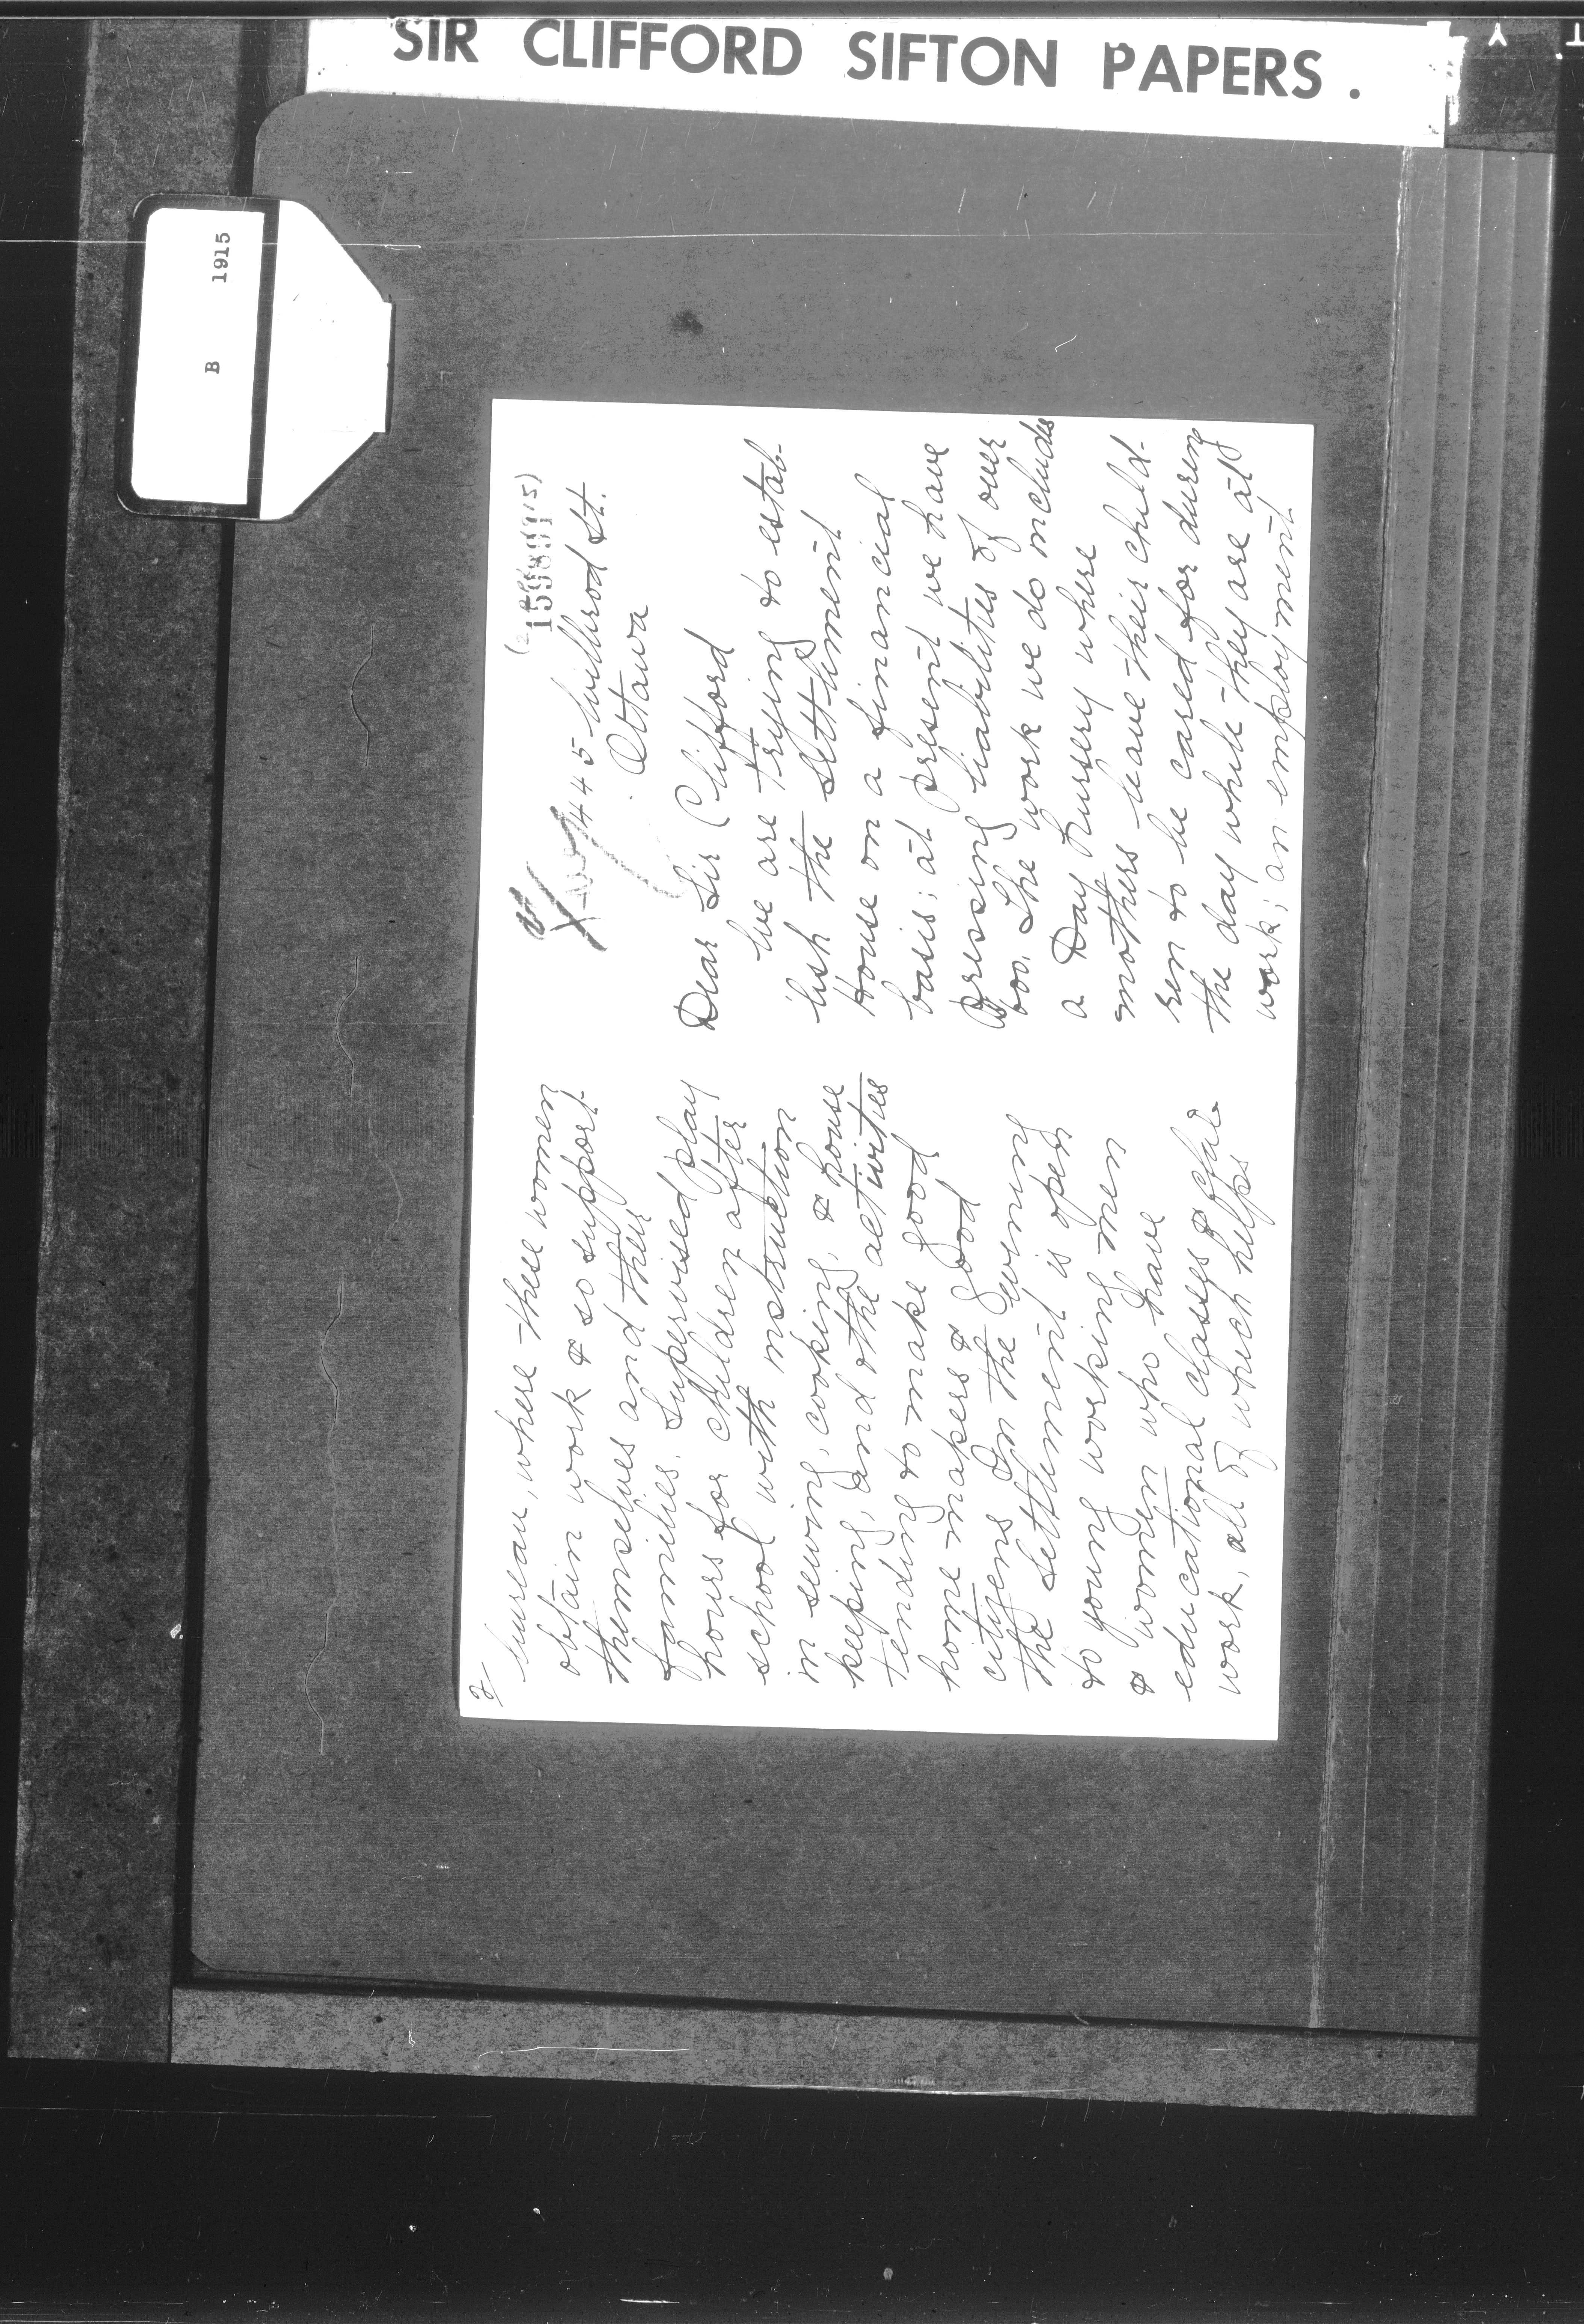 SIR CLIFFORD SIFTON PAPERS.
B 1915
445 Wilbrod St.
Ottawa
Dear Sir Clifford
We are trying to estab-
lish the Settlement
House on a financial
basis; at present we have
pressing liabilities of over
The work we do includes
a Day Nursery where
mothers leave their child-
ren to be cared for during
the day while they are at
work; an employment
2/
bureau, where these women
obtain work & so support
themselves and their
families. Supervised play
hours for children after
school with instruction
in sewing, cooking, & house
keeping, and othe activities
tending to make good
home makers & good
citizens In the evening
the Settlement is open
to young working men
& women who have
educational classes & club
work, all of which helps